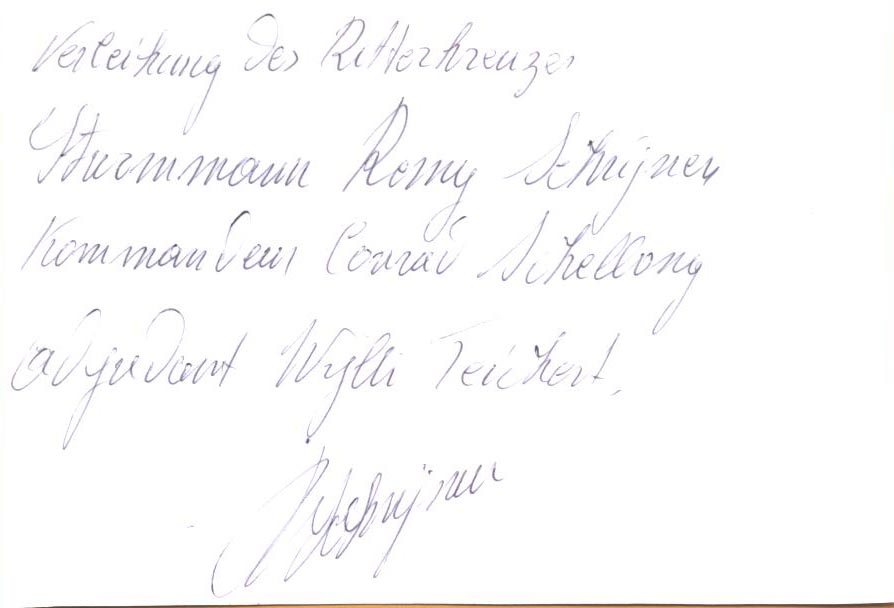 Verleihung des Ritterkreuzes
Sturmmann Remy Schrijnen
Kommandeur Conrad Schellong
adjudant Wylli Teichert,
R Schrijnen